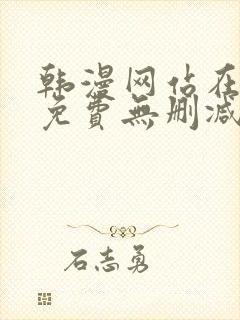 韩漫网站在
免費無删减
石志勇